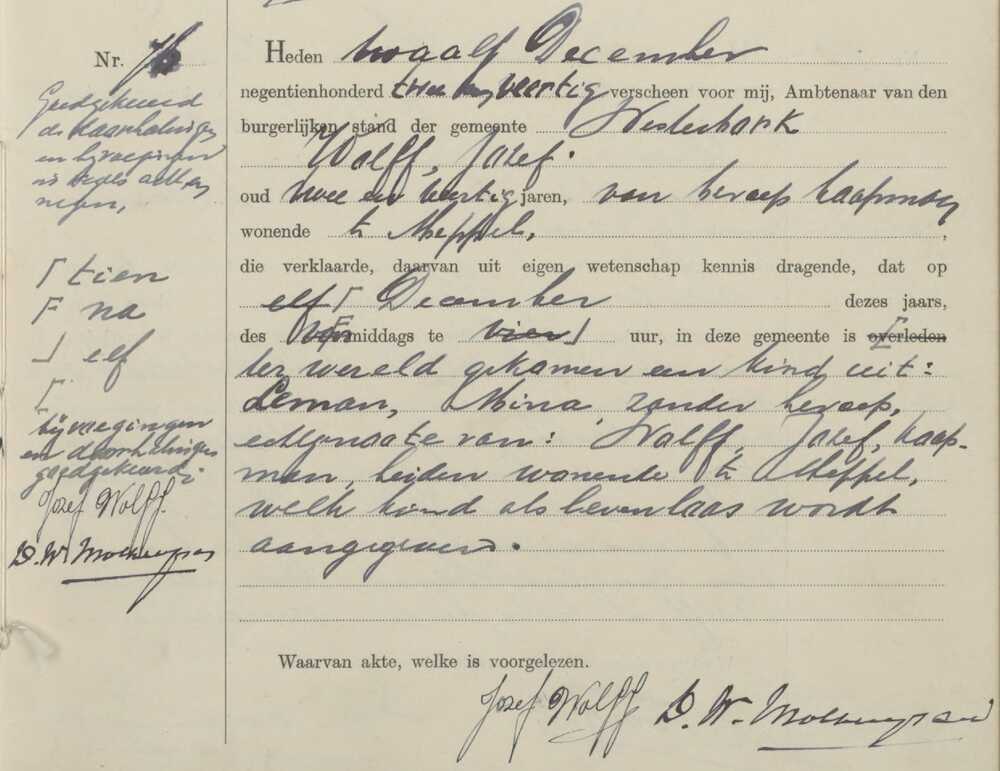 Nr. 76
Goedgekeurd
de doorhalingen
en bijvoegingen
in
negen,
⌈ tien
F na
⏌ elf
⌈
bijvoegingen
en doorhalingen
goedgekeurd
Jozef Wolff.
D. W. Molhuysen
Heden twaalf December
negentienhonderd twee en veertig verscheen voor mij, Ambtenaar van den
burgerlijken stand der gemeente Westerbork
Wolff, Jozef.
oud twee en veertig jaren, van beroep koopman
wonende te Meppel,
die verklaarde, daarvan uit eigen wetenschap kennis dragende, dat op
elf ⌈ December dezes jaars,
des voormiddags te vier ⏌ uur, in deze gemeente is overleden
ter wereld gekomen een kind uit:
Leman, Mina, zonder beroep,
echtgenoote van: Wolff, Jozef, koop-
man, beiden wonende te Meppel,
welk kind als levenloos wordt
aangegeven.
Waarvan akte, welke is voorgelezen.
Jozef Wolff D. W.